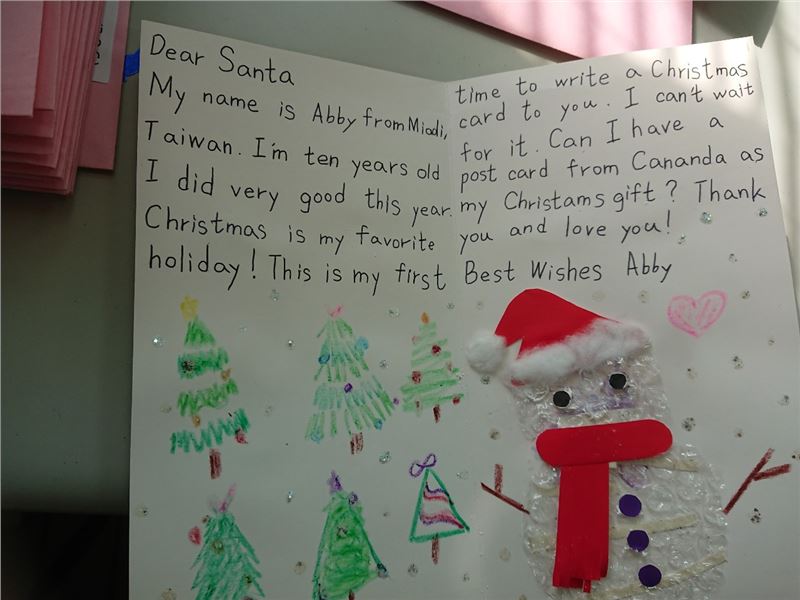 Dear Santa
My name is Abby from Miaoli,
Taiwan. I'm ten years old
I did very good this year.
Christmas is my favorite
holiday! This is my first
time to write a Christmas
card to you. I can't wait
for it. Can I have a
post card from Cananda as
my Christams gift? Thank
you and love you!
Best Wishes Abby